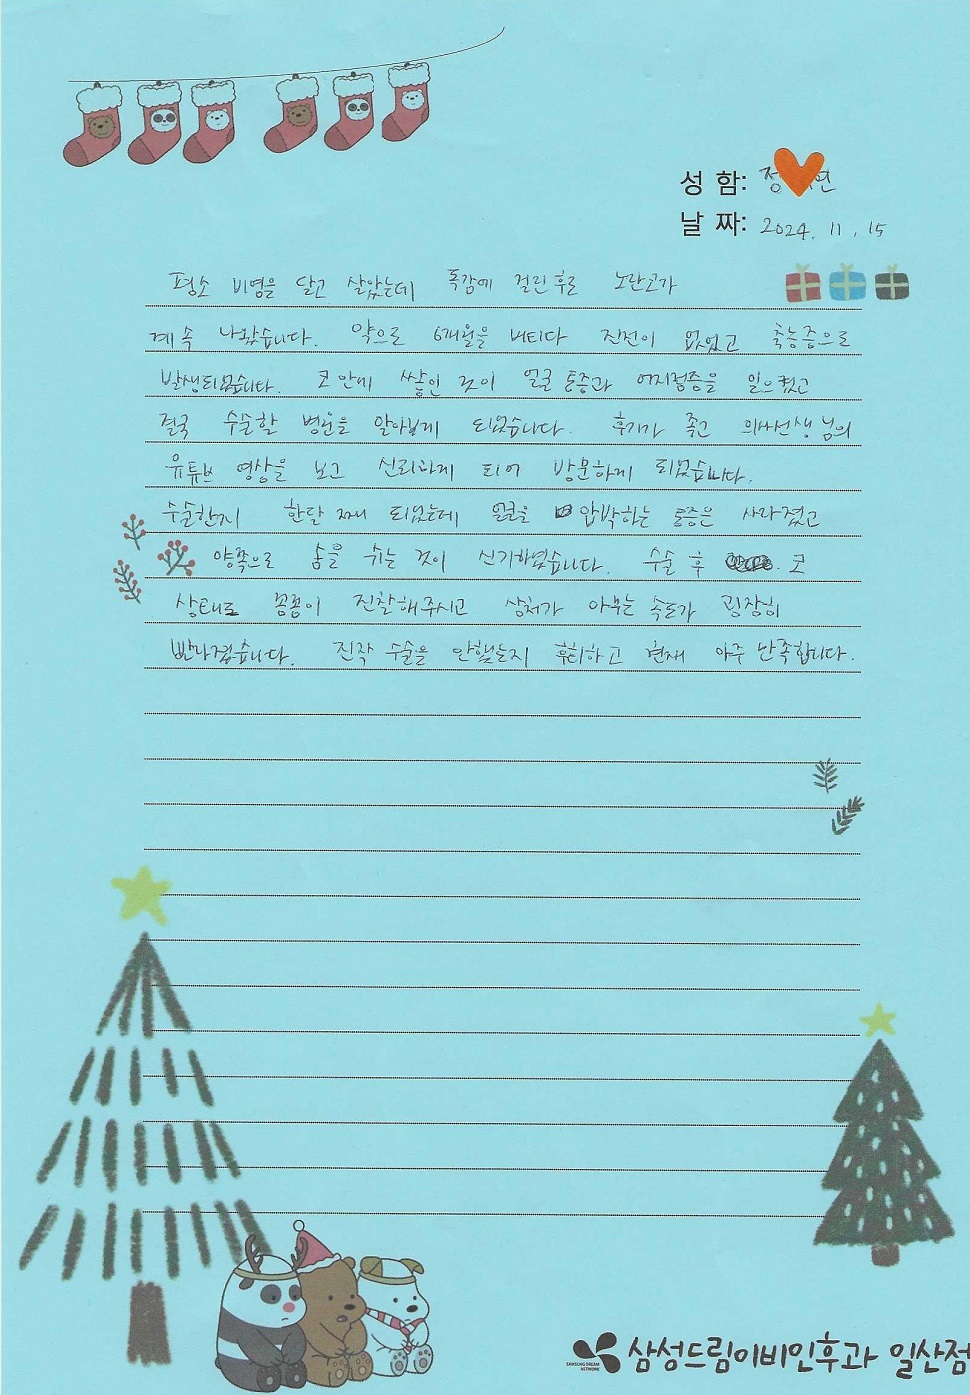 성 함: 정 연
날 짜: 2024. 11. 15
평소 비염을 달고 살았는데 독감에 걸린 후로 노란코가
계속 나왔습니다. 약으로 6개월을 버티다 진전이 없었고 축농증으로
발생되었습니다. 코 안에 쌓인 것이 얼굴 통증과 어지럼증을 일으켰고
결국 수술할 병원을 알아보게 되었습니다. 후기가 좋고 의사선생님의
유튜브 영상을 보고 신뢰하게 되어 방문하게 되었습니다.
수술한지 한달 째 되었는데 얼굴을 압박하는 통증은 사라졌고
양쪽으로 숨을 쉬는 것이 신기하였습니다. 수술 후 코
상태도 꼼꼼히 진찰해주시고 상처가 아무는 속도가 굉장히
빨라졌습니다. 진작 수술을 안했는지 후회하고 현재 아주 만족합니다.
SAMSUNG DREAM NETWORK
삼성드림이비인후과 일산점